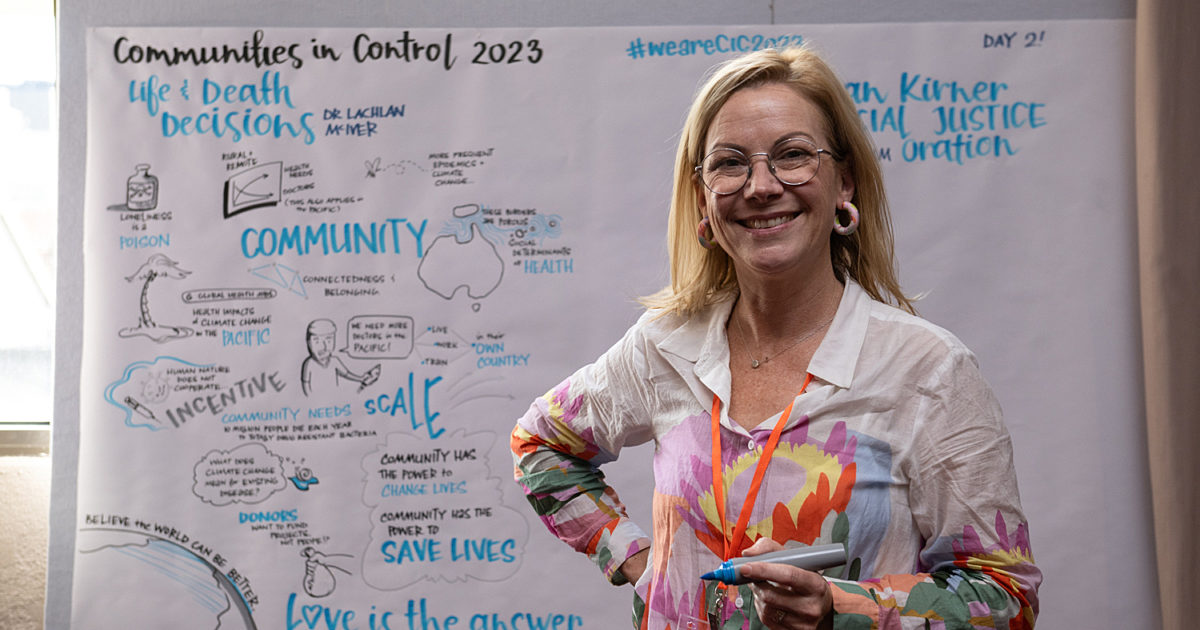 Communities in Control 2023
#weareCIC2023
DAY 2!
Life & Death
Decisions
DR LACHLAN
McIVER
an Kirner
CIAL JUSTICE
Oration
RURAL +
REMOTE
HEALTH
NEEDS
DOCTORS
(THIS ALSO APPLIES in
the PACIFIC)
MORE FREQUENT
EPIDEMICS +
CLIMATE
CHANGE...
LONELINESS
IS a
POISON
COMMUNITY
THESE BORDERS
ARE POROUS
SOCIAL
DETERMINANTS
of HEALTH
CONNECTEDNESS &
BELONGING
GLOBAL HEALTH
HEALTH IMPACTS
of CLIMATE CHANGE
in the PACIFIC
WE NEED MORE
DOCTORS in the
PACIFIC!
LIVE
WORK
TRAIN
in their
OWN
COUNTRY
HUMAN NATURE
DOES NOT
COOPERATE...
INCENTIVE
COMMUNITY NEEDS
SCALE
10 MILLION PEOPLE DIE EACH YEAR
to TOTALLY DRUG RESISTANT BACTERIA
WHAT DOES
CLIMATE CHANGE
MEAN for EXISTING
DISEASE?
COMMUNITY HAS
THE POWER to
CHANGE LIVES
COMMUNITY HAS THE
POWER to
SAVE LIVES
DONORS
WANT to FUND
PROJECTS,
NOT PEOPLE!?
BELIEVE the WORLD CAN BE BETTER.
Love is the answer